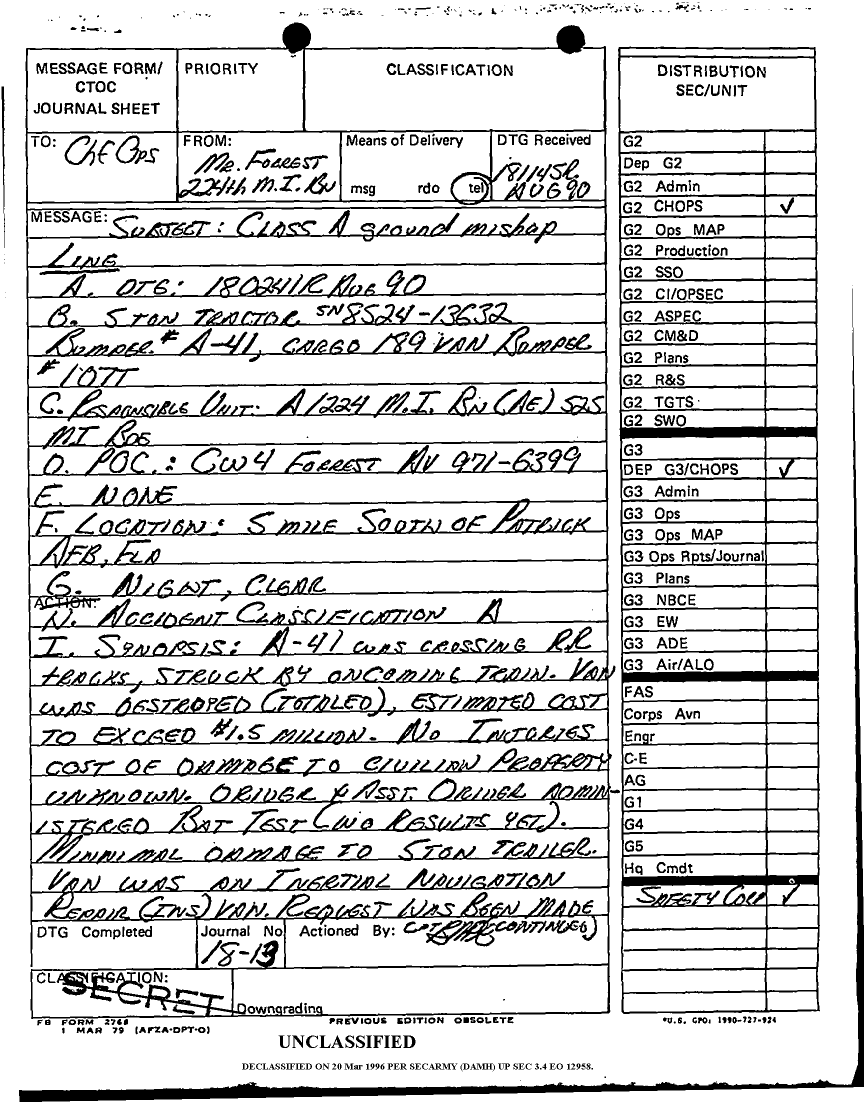 MESSAGE FORM/
CTOC
JOURNAL SHEET
PRIORITY
CLASSIFICATION
TO: Chf Ops
FROM:
Mr. FORREST
224th M.I. BN
Means of Delivery
msg rdo tel
DTG Received
181145R
AUG 90
MESSAGE: SUBJECT: CLASS A ground mishap
LINE
A. DTG: 180241R AUG 90
B. 5 TON TRACTOR SN 8524-13632
BUMPER # A-41, CARGO 189 VAN BUMPER
# 107T
C. RESPONSIBLE UNIT: A/224 M.I. BN (AE) 525
MI BDE
D. POC.: CW4 FORREST AV 971-6399
E. NONE
F. LOCATION: 5 MILE SOUTH OF PATRICK
AFB, FLA
G. NIGHT, CLEAR
ACTION:
H. ACCIDENT CLASSIFICATION A
I. SYNOPSIS: A-41 WAS CROSSING RR
TRACKS, STRUCK BY ONCOMING TRAIN. VAN
WAS DESTROYED (TOTALED), ESTIMATED COST
TO EXCEED $1.5 MILLION. NO INJURIES
COST OF DAMAGE TO CIVILIAN PROPERTY
UNKNOWN. DRIVER & ASST. DRIVER ADMIN-
ISTERED BAT TEST (NO RESULTS YET).
MINNIMAL DAMAGE TO 5TON TRAILER.
VAN WAS AN INERTIAL NAVIGATION
REPAIR (INS) VAN. REQUEST HAS BEEN MADE
(CONTINUED)
DTG Completed
Journal No
18-13
Actioned By: CPT
CLASSIFICATION:
SECRET
Downgrading
FB FORM 2768
1 MAR 79 (AFZA-DPT-O)
PREVIOUS EDITION OBSOLETE
DISTRIBUTION
SEC/UNIT
G2
Dep G2
G2 Admin
G2 CHOPS ✓
G2 Ops MAP
G2 Production
G2 SSO
G2 CI/OPSEC
G2 ASPEC
G2 CM&D
G2 Plans
G2 R&S
G2 TGTS
G2 SWO
G3
DEP G3/CHOPS ✓
G3 Admin
G3 Ops
G3 Ops MAP
G3 Ops Rpts/Journal
G3 Plans
G3 NBCE
G3 EW
G3 ADE
G3 Air/ALO
FAS
Corps Avn
Engr
C-E
AG
G1
G4
G5
Hq Cmdt
SAFETY CORP ✓
*U.S. GPO: 1990-727-924
UNCLASSIFIED
DECLASSIFIED ON 20 Mar 1996 PER SECARMY (DAMH) UP SEC 3.4 EO 12958.